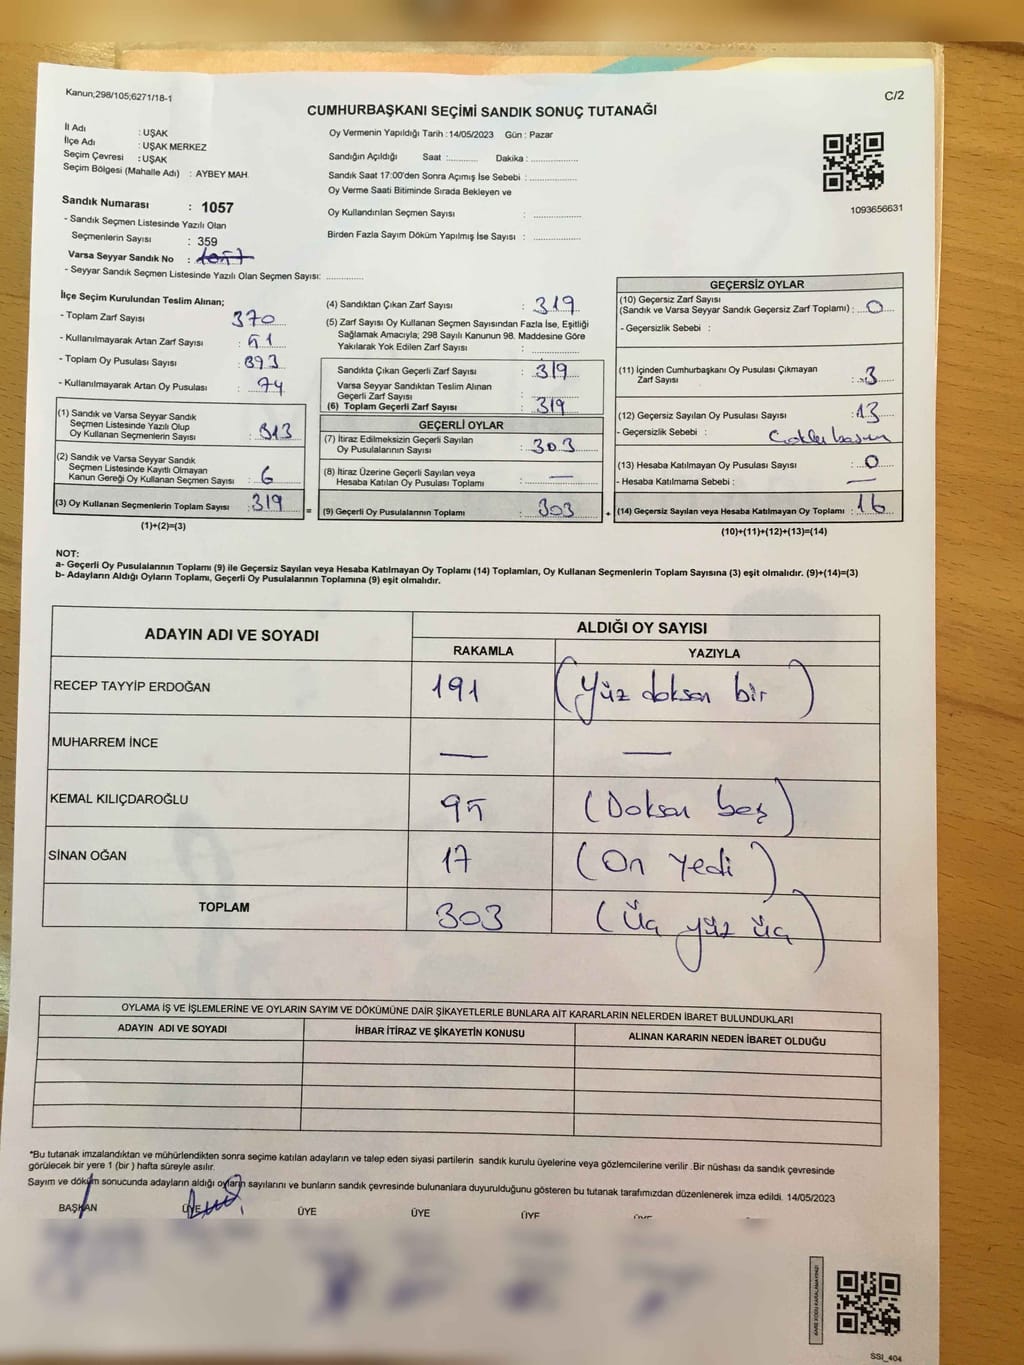 Kanun;298/105;6271/18-1
C/2
CUMHURBAŞKANI SEÇİMİ SANDIK SONUÇ TUTANAĞI
İl Adı : UŞAK
İlçe Adı : UŞAK MERKEZ
Seçim Çevresi : UŞAK
Seçim Bölgesi (Mahalle Adı) : AYBEY MAH.
Sandık Numarası : 1057
- Sandık Seçmen Listesinde Yazılı Olan
Seçmenlerin Sayısı : 359
Varsa Seyyar Sandık No : 1057
- Seyyar Sandık Seçmen Listesinde Yazılı Olan Seçmen Sayısı: ..............
Oy Vermenin Yapıldığı Tarih : 14/05/2023 Gün : Pazar
Sandığın Açıldığı Saat :........... Dakika : ................
Sandık Saat 17:00'den Sonra Açımış İse Sebebi : ................
Oy Verme Saati Bitiminde Sırada Bekleyen ve
Oy Kullandırılan Seçmen Sayısı : ................
Birden Fazla Sayım Döküm Yapılmış İse Sayısı : ................
1093656631
İlçe Seçim Kurulundan Teslim Alınan;
- Toplam Zarf Sayısı 370
- Kullanılmayarak Artan Zarf Sayısı : 51
- Toplam Oy Pusulası Sayısı : 393
- Kullanılmayarak Artan Oy Pusulası : 74
(1) Sandık ve Varsa Seyyar Sandık
Seçmen Listesinde Yazılı Olup
Oy Kullanan Seçmenlerin Sayısı : 313
(2) Sandık ve Varsa Seyyar Sandık
Seçmen Listesinde Kayıtlı Olmayan
Kanun Gereği Oy Kullanan Seçmen Sayısı : 6
(3) Oy Kullanan Seçmenlerin Toplam Sayısı : 319
(1)+(2)=(3)
=
(4) Sandıktan Çıkan Zarf Sayısı : 319
(5) Zarf Sayısı Oy Kullanan Seçmen Sayısından Fazla İse, Eşitliği
Sağlamak Amacıyla; 298 Sayılı Kanunun 98. Maddesine Göre
Yakılarak Yok Edilen Zarf Sayısı : ................
Sandıkta Çıkan Geçerli Zarf Sayısı : 319
Varsa Seyyar Sandıktan Teslim Alınan
Geçerli Zarf Sayısı : ................
(6) Toplam Geçerli Zarf Sayısı : 319
GEÇERLİ OYLAR
(7) İtiraz Edilmeksizin Geçerli Sayılan
Oy Pusulalarının Sayısı : 303
(8) İtiraz Üzerine Geçerli Sayılan veya
Hesaba Katılan Oy Pusulası Toplamı : —
(9) Geçerli Oy Pusulalarının Toplamı : 303
+
GEÇERSİZ OYLAR
(10) Geçersiz Zarf Sayısı
(Sandık ve Varsa Seyyar Sandık Geçersiz Zarf Toplamı) : 0
- Geçersizlik Sebebi :
(11) İçinden Cumhurbaşkanı Oy Pusulası Çıkmayan
Zarf Sayısı : 3
(12) Geçersiz Sayılan Oy Pusulası Sayısı : 13
- Geçersizlik Sebebi :
(13) Hesaba Katılmayan Oy Pusulası Sayısı : 0
- Hesaba Katılmama Sebebi : —
(14) Geçersiz Sayılan veya Hesaba Katılmayan Oy Toplamı : 16
(10)+(11)+(12)+(13)=(14)
NOT:
a- Geçerli Oy Pusulalarının Toplamı (9) ile Geçersiz Sayılan veya Hesaba Katılmayan Oy Toplamı (14) Toplamları, Oy Kullanan Seçmenlerin Toplam Sayısına (3) eşit olmalıdır. (9)+(14)=(3)
b- Adayların Aldığı Oyların Toplamı, Geçerli Oy Pusulalarının Toplamına (9) eşit olmalıdır.
ADAYIN ADI VE SOYADI ALDIĞI OY SAYISI
RAKAMLA YAZIYLA
RECEP TAYYİP ERDOĞAN 191 (Yüz doksan bir)
MUHARREM İNCE — —
KEMAL KILIÇDAROĞLU 95 (Doksan beş)
SİNAN OĞAN 17 (On yedi)
TOPLAM 303 (Üç yüz üç)
OYLAMA İŞ VE İŞLEMLERİNE VE OYLARIN SAYIM VE DÖKÜMÜNE DAİR ŞİKAYETLERLE BUNLARA AİT KARARLARIN NELERDEN İBARET BULUNDUKLARI
ADAYIN ADI VE SOYADI İHBAR İTİRAZ VE ŞİKAYETİN KONUSU ALINAN KARARIN NEDEN İBARET OLDUĞU
*Bu tutanak imzalandıktan ve mühürlendikten sonra seçime katılan adayların ve talep eden siyasi partilerin sandık kurulu üyelerine veya gözlemcilerine verilir .Bir nüshası da sandık çevresinde
görülecek bir yere 1 (bir ) hafta süreyle asılır.
Sayım ve döküm sonucunda adayların aldığı oyların sayılarını ve bunların sandık çevresinde bulunanlara duyurulduğunu gösteren bu tutanak tarafımızdan düzenlenerek imza edildi. 14/05/2023
BAŞKAN ÜYE ÜYE ÜYE ÜYE ÜYE
SSI_404